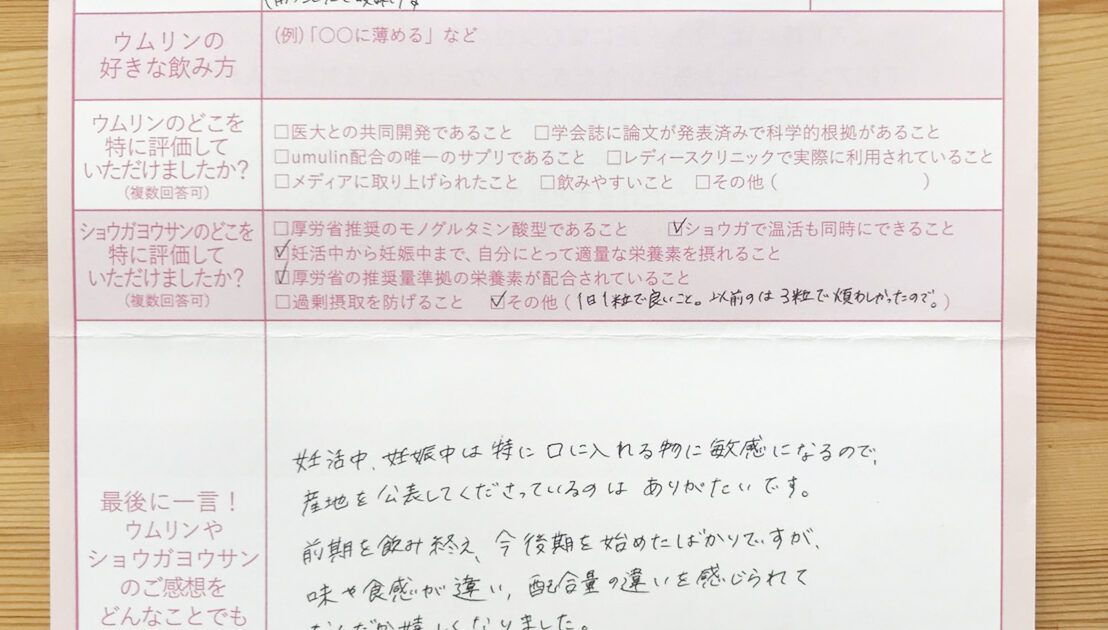 ウムリンの
好きな飲み方
(例)「〇〇に薄める」など
ウムリンのどこを
特に評価して
いただけましたか?
(複数回答可)
□医大との共同開発であること □学会誌に論文が発表済みで科学的根拠があること
□umulin配合の唯一のサプリであること □レディースクリニックで実際に利用されていること
□メディアに取り上げられたこと □飲みやすいこと □その他( )
ショウガヨウサンのどこを
特に評価して
いただけましたか?
(複数回答可)
□厚労省推奨のモノグルタミン酸型であること ☑ショウガで温活も同時にできること
☑妊活中から妊娠中まで、自分にとって適量な栄養素を摂れること
☑厚労省の推奨量準拠の栄養素が配合されていること
□過剰摂取を防げること ☑その他(1日1粒で良いこと。以前のは3粒で煩わしかったので。)
最後に一言!
ウムリンや
ショウガヨウサン
のご感想を
どんなことでも
妊活中、妊娠中は特に口に入れる物に敏感になるので、
産地を公表してくださっているのはありがたいです。
前期を飲み終え、今後期を始めたばかりですが、
味や食感が違い、配合量の違いを感じられて
なんだか嬉しくなりました。